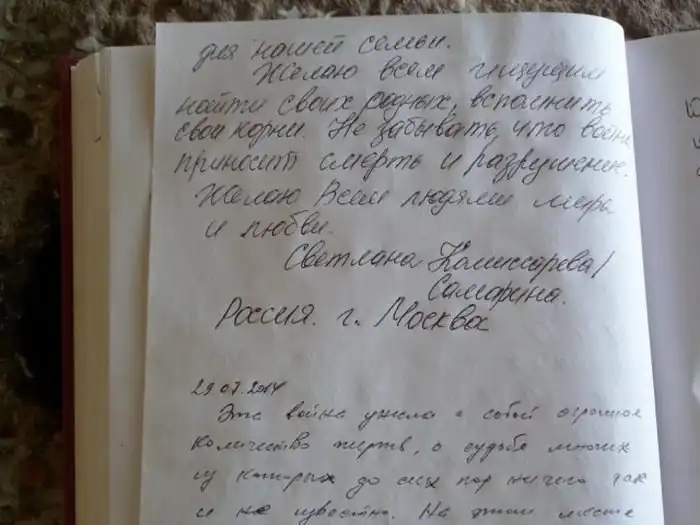 для нашей семьи.
Желаю всем ищущим
найти своих родных, вспомнить
свои корни. Не забывать, что война
приносит смерть и разрушение.
Желаю Всем людям мира
и любви.
Светлана Комиссарова/
Самарина.
Россия. г. Москва
29.07.2014
Эта война унесла с собой огромное
количество жертв, о судьбе многих
из которых до сих пор ничего так
и не известно. На этом месте